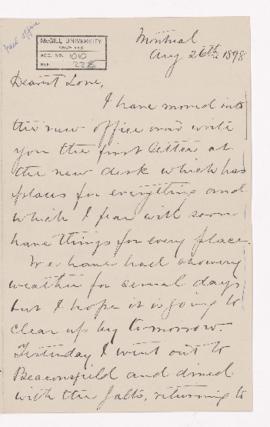 McGILL UNIVERSITY
ACC. NO. 1010
REF. 228
Montreal
Aug 26th 1898
Dearest Love,
I have moved into
the new office and write
you the first letter at
the new desk which has
places for everything and
which I fear will soon
have things for every place.
We have had showery
weather for several days
but I hope it is going to
clear up by tomorrow.
Yesterday I went out to
Beaconsfield and dined
with the Jaffs, returning to